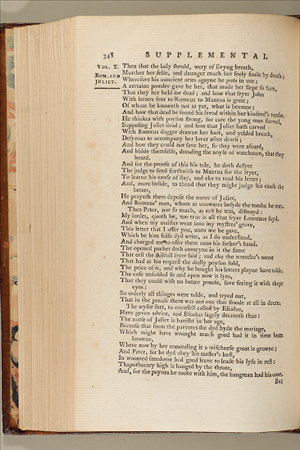 348 SUPPLEMENTAL
VOL. X. Then that the lady should, wery of lyvyng breath,
ROM. AND JULIET. Murther her selfe, and daunger much her seely soule by death;
Wherefore his auncient artes agayne he puts in ure;
A certaine powder gave he her, that made her slepe so sure,
That they her held for dead; and how that fryer John
With letters sent to Romeus to Mantua is gone;
Of whom he knoweth not as yet, what is become;
And how that dead he found his frend within her kindred's tombe.
He thinkes with poyson strong, for care the yong man sterved,
Supposing Juliet dead; and how that Juliet hath carved
With Romeus dagger drawne her hart, and yelded breath,
Desyrous to accompany her lover after death;
And how they could not save her, so they were afeard,
And hidde themselfe, dreading the noyse of watchmen, that they
heard.
And for the proofe of this his tale, he doth desyer
The judge to send forthwith to Mantua for the fryer,
To learne his cause of stay, and eke to read his letter;
And, more beside, to thend that they might judge his cause the
better,
He prayeth them depose the nurce of Juliet,
And Romeus' man, whom at unawares besyde the tombe he met.
Then Peter, not so much, as erst he was, dismayd:
My lordes, quoth he, too true is all that fryer Laurence sayd.
And when my maister went into my mystres' grave,
This letter that I offer you, unto me he gave,
Which he him selfe dyd write, as I do understand,
And charged me to offer them unto his father's hand.
The opened packet doth conteyne in it the same
That erst the skilfull fryer said; and eke the wretche's name
That had at his request the dedly poyson sold,
The price of it, and why he bought his letters playne have tolde.
The case unfolded so and open now it lyes,
That they could wish no better proofe, save seeing it with theyr
eyes;
So orderly all things were tolde, and tryed out,
That in the prease there was not one that stoode at all in doute.
The wyser sort, to councell called by Escalus,
Have geven advice, and Escalus sagely decreeth thus:
The nurse of Juliet is banisht in her age,
Because that from the parentes she dyd hyde the mariage,
Which might have wrought much good had it in time been
knowne,
Where now by her concealing it a mischeefe great is growne;
And Peter, for he dyd obey his master's hest,
In woonted freedome had good leave to leade his lyfe in rest:
Thapothecary high is hanged by the throte,
And, for the paynes he tooke with him, the hangman had his cote.
But